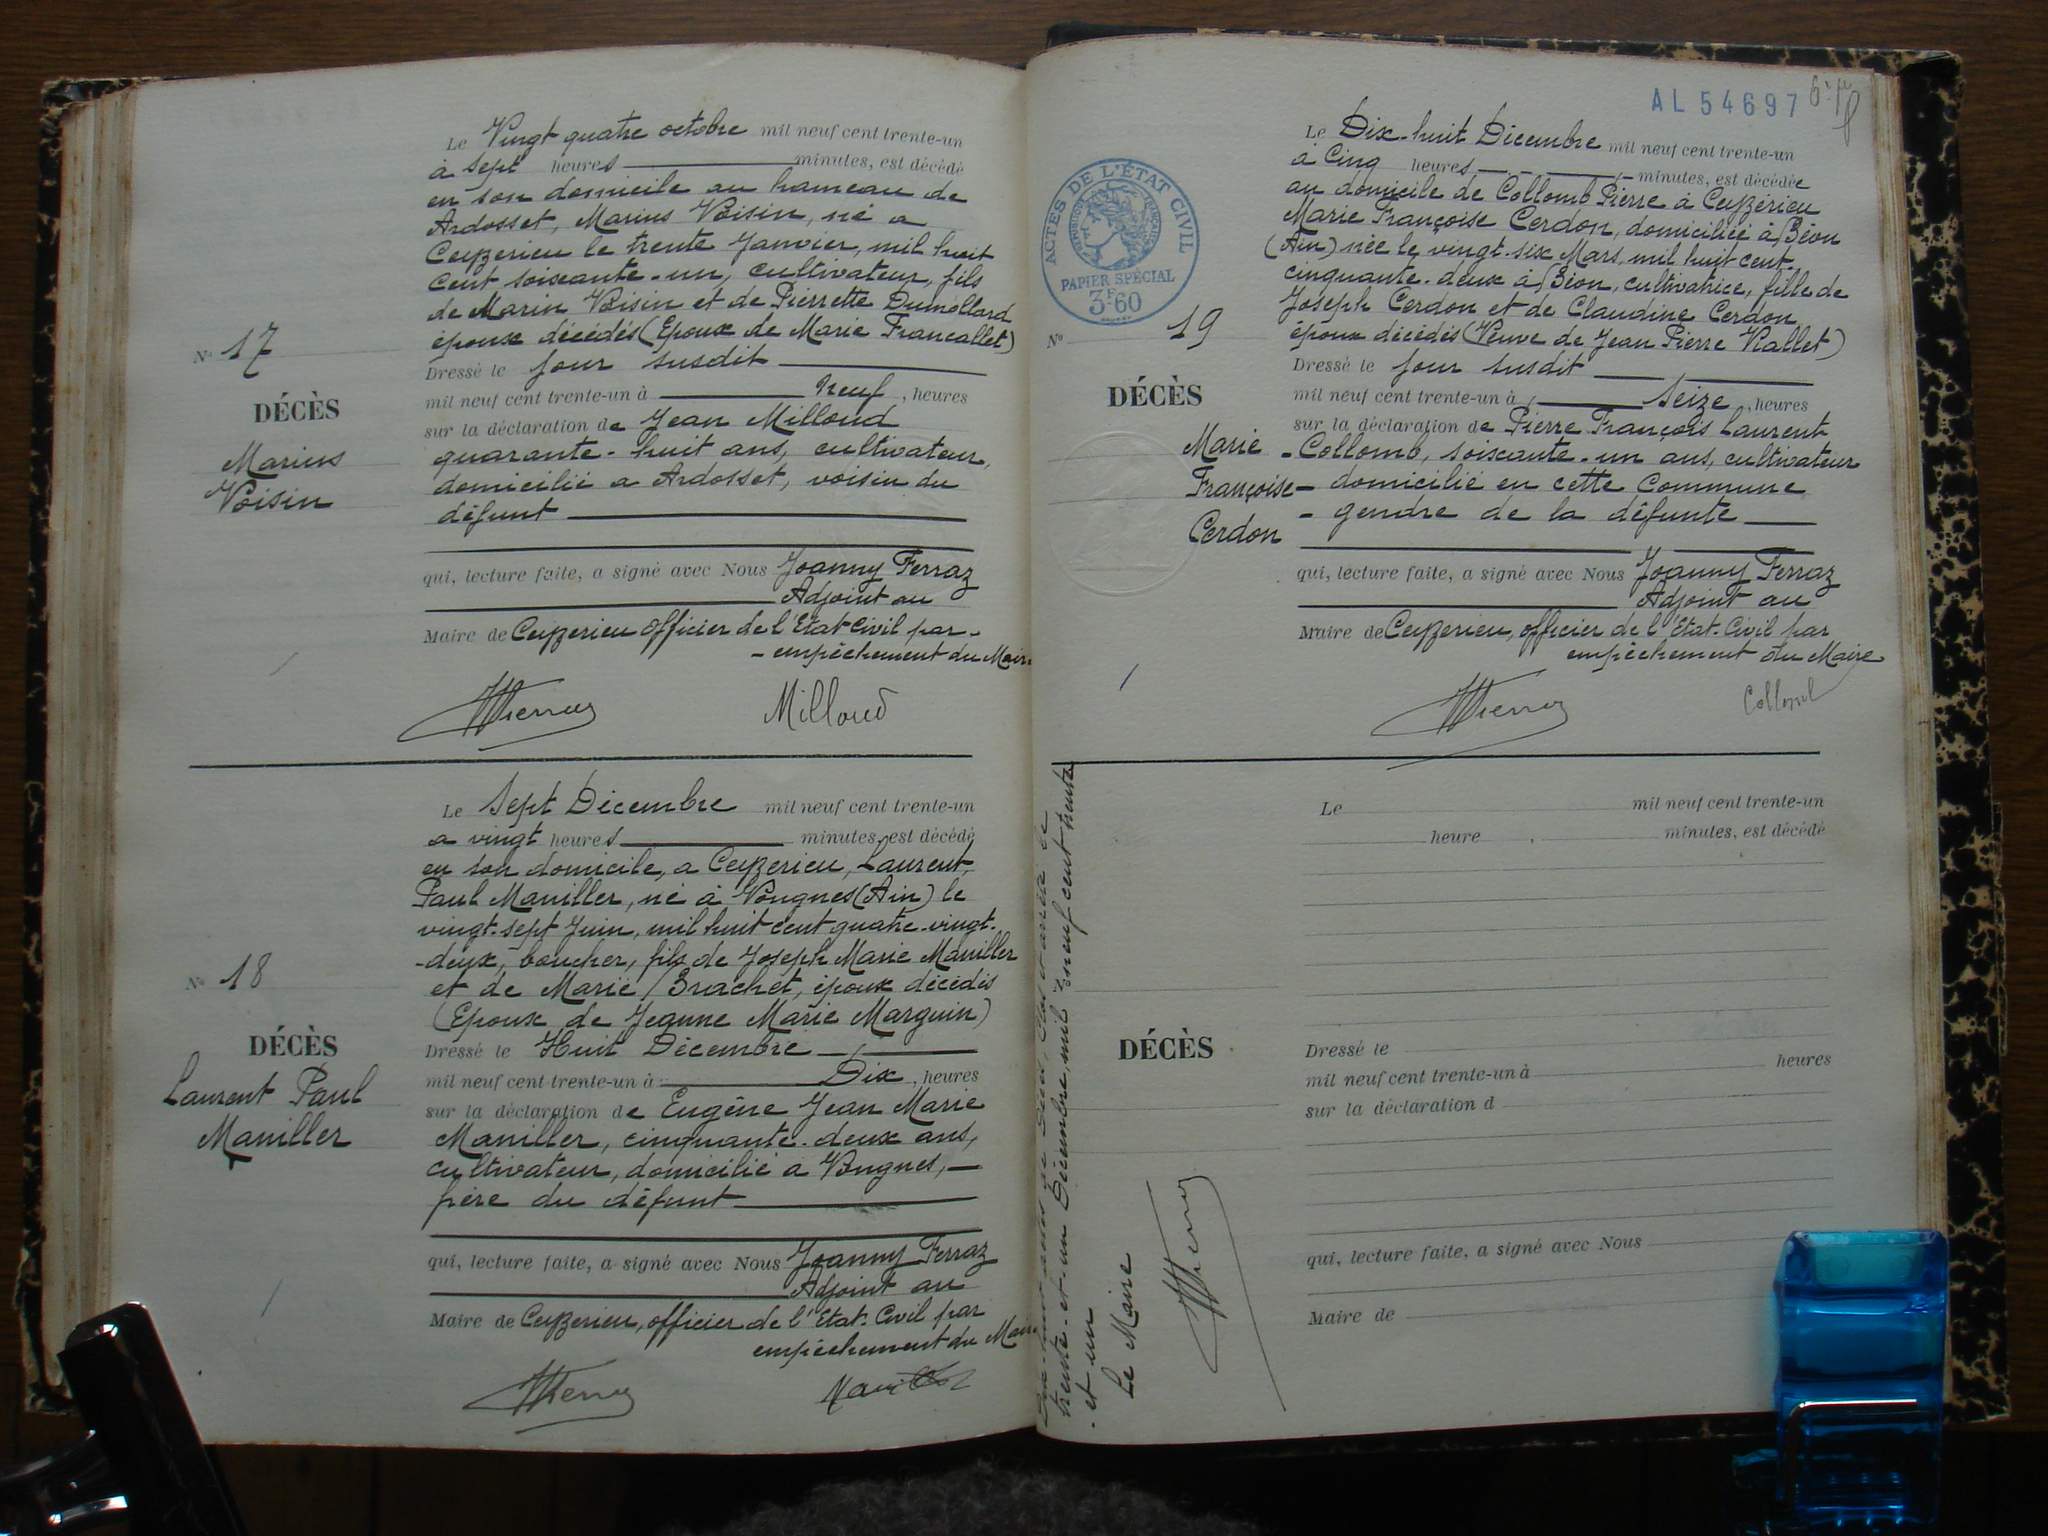 Le Vingt quatre octobre mil neuf cent trente-un
à sept heures minutes, est décédé
en son domicile au hameau de
Ardosset, Marius Voisin, né a
Ceyzerieu le trente Janvier, mil huit
cent soixante-un, cultivateur, fils
de Marin Voisin et de Pierrette Dumollard
époux décédés (Epoux de Marie Francallet)
Dressé le jour susdit
mil neuf cent trente-un à neuf, heures
sur la déclaration de Jean Milloud
quarante-huit ans, cultivateur,
domicilié a Ardosset, voisin du
défunt
qui, lecture faite, a signé avec Nous Joanny Ferraz
Adjoint au
Maire de Ceyzerieu officier de l'Etat Civil par
empêchement du Maire
Milloud
N° 17
DÉCÈS
Marius
Voisin
Le Sept Décembre mil neuf cent trente-un
a vingt heures minutes, est décédé
en son domicile, a Ceyzerieu, Laurent,
Paul Maviller, né à Vongnes (Ain) le
vingt-sept Juin, mil huit cent quatre-vingt-
-deux, boucher, fils de Joseph Marie Maviller
et de Marie Brachet, époux décédés
(Epoux de Jeanne Marie Marguin)
Dressé le Huit Décembre
mil neuf cent trente-un à Dix, heures
sur la déclaration de Eugène Jean Marie
Maviller, cinquante-deux ans,
cultivateur, domicilié a Vongnes,
frère du défunt
qui, lecture faite, a signé avec Nous Joanny Ferraz
Adjoint au
Maire de Ceyzerieu, officier de l'Etat-Civil par
empêchement du Maire
N° 18
DÉCÈS
Laurent Paul
Maviller
AL 54697
ACTES DE L'ÉTAT CIVIL
PAPIER SPÉCIAL
3F60
Le Dix-huit Décembre mil neuf cent trente-un
à Cinq heures minutes, est décédée
au domicile de Collomb Pierre à Ceyzérieu
Marie Françoise Cerdon, domiciliée à Béon
(Ain) née le vingt-six Mars, mil huit cent-
cinquante-deux à Béon, cultivatrice, fille de
Joseph Cerdon et de Claudine Cerdon
époux décédés (Veuve de Jean Pierre Viallet)
Dressé le jour susdit
mil neuf cent trente-un à Seize, heures
sur la déclaration de Pierre François Laurent
Collomb, soixante-un ans, cultivateur
domicilié en cette Commune
gendre de la défunte
qui, lecture faite, a signé avec Nous Joanny Ferraz
Adjoint au
Maire de Ceyzerieu, officier de l'Etat-Civil par
empêchement du Maire
Collomb
N° 19
DÉCÈS
Marie
Françoise
Cerdon
trente-et-un Décembre, mil neuf cent trente
-et-un
Le Maire
DÉCÈS
Le mil neuf cent trente-un
heure minutes, est décédé
Dressé le
mil neuf cent trente-un à heures
sur la déclaration d
qui, lecture faite, a signé avec Nous
Maire de